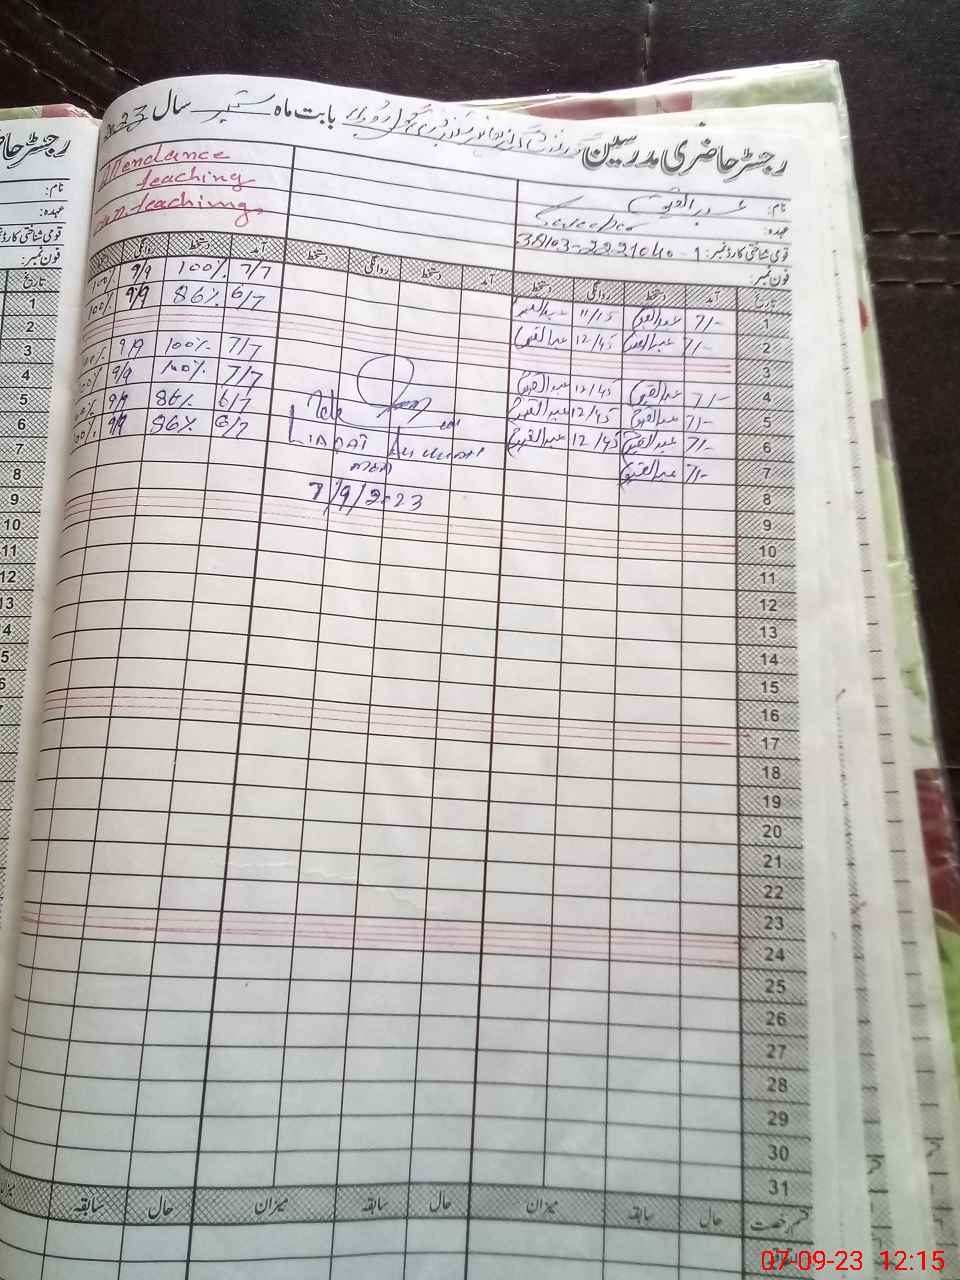 رجسٹر حاضری مدرسین
بابت ماہ ستمبر سال 2023
نام: عبدالقیوم
عہدہ: Sweeper
قومی شناختی کارڈ نمبر:
فون نمبر:
Attendance
teaching
teaching
تاریخ آمد دستخط روانگی دستخط آمد دستخط روانگی دستخط آمد دستخط روانگی
1 7/- عبدالقیوم 11/15 عبدالقیوم 7/7 100% 9/9 100%
2 7/- عبدالقیوم 12/45 عبدالقیوم 6/7 86% 9/9 100%
3
4 7/- عبدالقیوم 12/45 عبدالقیوم 7/7 100% 9/9 100%
5 7/- عبدالقیوم 12/45 عبدالقیوم 7/7 100% 9/9 100%
6 7/- عبدالقیوم 12/45 عبدالقیوم 6/7 86% 9/9 100%
7 7/- عبدالقیوم 6/7 86% 9/9 100%
LIAQAT
7/9/2023
8
9
10
11
12
13
14
15
16
17
18
19
20
21
22
23
24
25
26
27
28
29
30
31
قسم رخصت حال سابقہ میزان حال سابقہ میزان حال سابقہ
رجسٹر حا
نام:
عہدہ:
قومی شناختی کارڈ
فون نمبر:
تاریخ
1
2
3
4
5
6
7
8
9
10
11
12
13
07-09-23 12:15